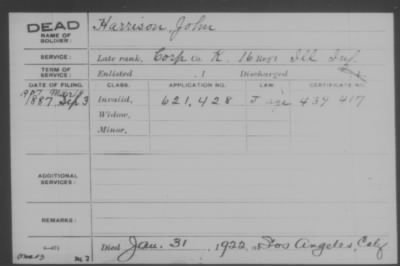 DEAD
NAME OF
SOLDIER:
Harrison, John
SERVICE:
Late rank, Corp Co. K, 16 Reg't Ill Inf.
TERM OF
SERVICE:
Enlisted , 1 Discharged
DATE OF FILING. CLASS. APPLICATION NO. LAW CERTIFICATE NO.
1887 Sep 3 Invalid, 621,428 439 417
Widow,
Minor,
ADDITIONAL
SERVICES:
REMARKS:
Died Jan. 31, 1922, at Los Angeles, Calf